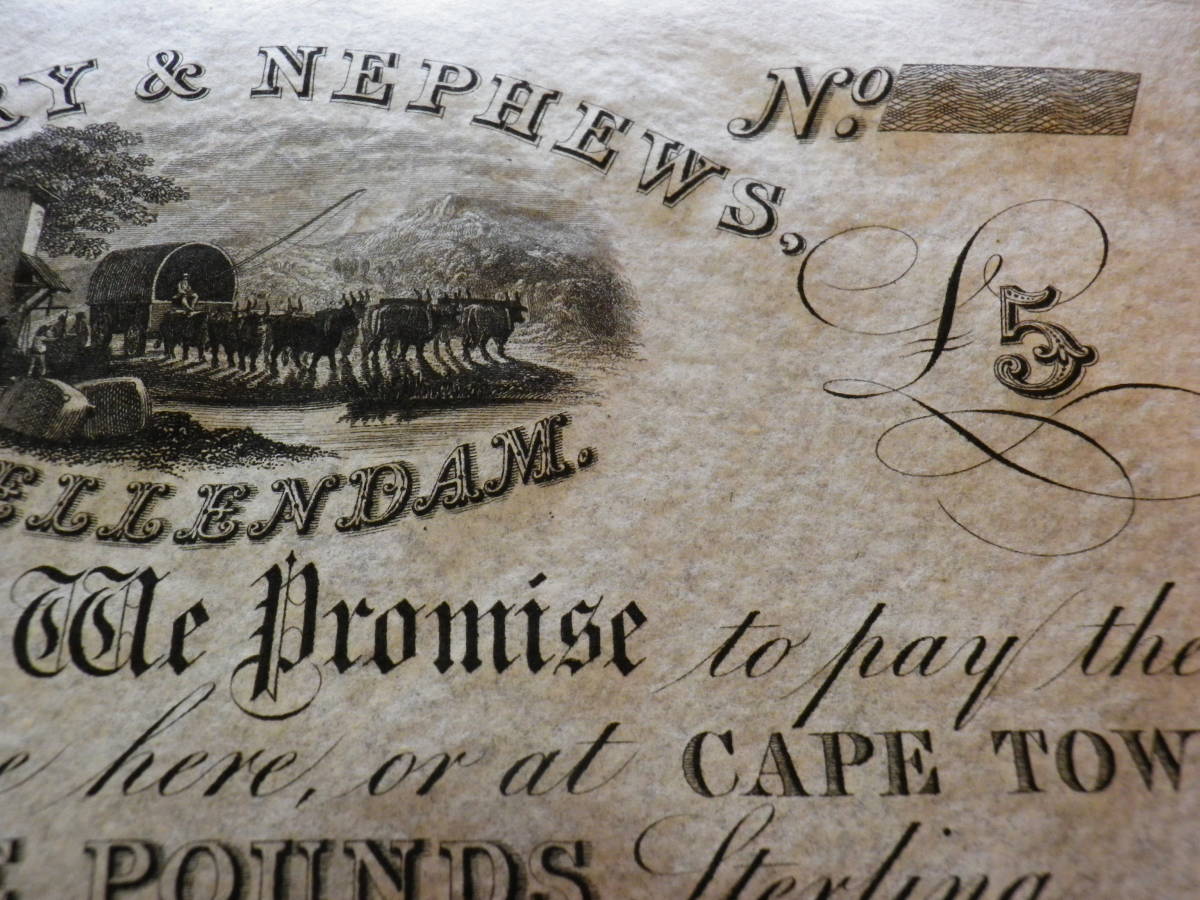 RY & NEPHEWS,
No
£5
ELLENDAM.
We Promise to pay the
e here, or at CAPE TOW
E POUNDS Sterling